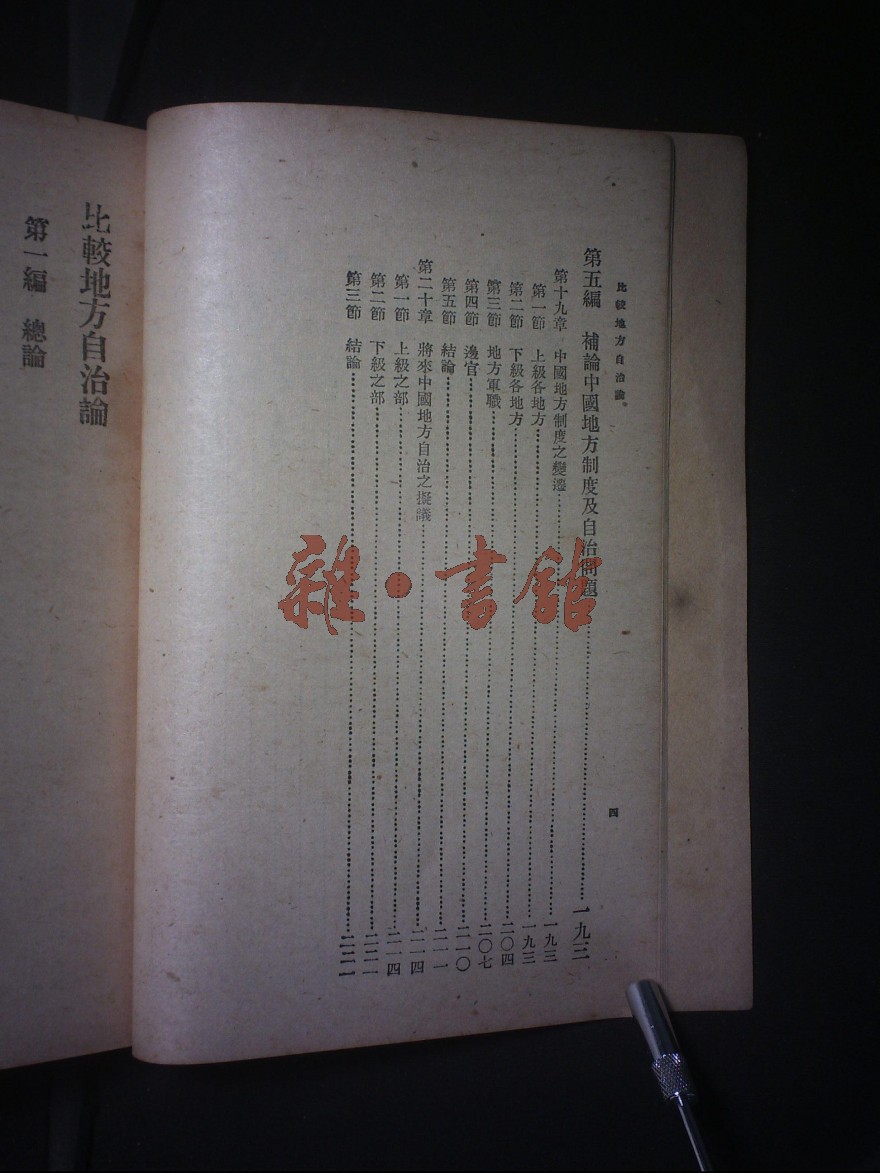 比較地方自治論
第五編 補論中國地方制度及自治問題……一九三
第十九章 中國地方制度之變遷……一九三
第一節 上級各地方……一九三
第二節 下級各地方……二〇四
第三節 地方軍職……二〇七
第四節 邊官……二一〇
第五節 結論……二一一
第二十章 將來中國地方自治之擬議……二一四
第一節 上級之部……二一四
第二節 下級之部……二二一
第三節 結論……二二一
四
比較地方自治論
第一編 總論
雜·書館